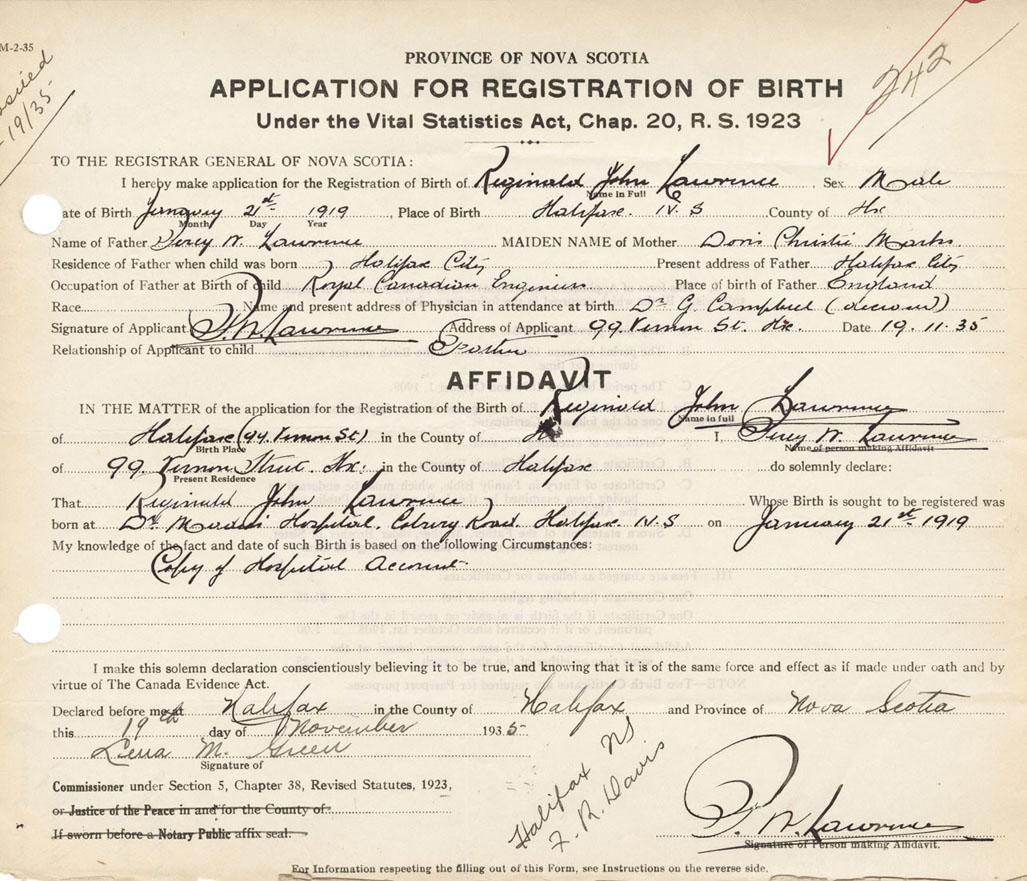 M-2-35
19/35
242
PROVINCE OF NOVA SCOTIA
APPLICATION FOR REGISTRATION OF BIRTH
Under the Vital Statistics Act, Chap. 20, R. S. 1923
TO THE REGISTRAR GENERAL OF NOVA SCOTIA:
I hereby make application for the Registration of Birth of Reginald John Lawrence, Sex Male
Name in Full
ate of Birth January 21st 1919, Place of Birth Halifax. N.S County of Hx
Month Day Year
Name of Father Percy W. Lawrence MAIDEN NAME of Mother Doris Christie Marks.
Residence of Father when child was born Halifax City Present address of Father Halifax City
Occupation of Father at Birth of child Royal Canadian Engineers Place of birth of Father England
Race Name and present address of Physician in attendance at birth Dr G. Campbell
Signature of Applicant P. W. Lawrence Address of Applicant 99 Vernon St. Hx. Date 19.11.35
Relationship of Applicant to child Father
AFFIDAVIT
IN THE MATTER of the application for the Registration of the Birth of Reginald John Lawrence
Name in full
of Halifax (99. Vernon St) in the County of Hx I, Percy W. Lawrence
Birth Place Name of person making Affidavit
of 99. Vernon Street. Hx. in the County of Halifax do solemnly declare:
Present Residence
That Reginald John Lawrence Whose Birth is sought to be registered was
born at Dr. Hospital. Coburg Road. Halifax. N.S on January 21st 1919
My knowledge of the fact and date of such Birth is based on the following Circumstances:
Copy of Hospital Account
I make this solemn declaration conscientiously believing it to be true, and knowing that it is of the same force and effect as if made under oath and by
virtue of The Canada Evidence Act.
Declared before me at Halifax in the County of Halifax and Province of Nova Scotia
this 19th day of November 1935
Lena M. Green
Signature of
Commissioner under Section 5, Chapter 38, Revised Statutes, 1923,
or Justice of the Peace in and for the County of
If sworn before a Notary Public affix seal.
Halifax NS
F. R. Davis
P. W. Lawrence
Signature of Person making Affidavit.
For Information respecting the filling out of this Form, see Instructions on the reverse side.